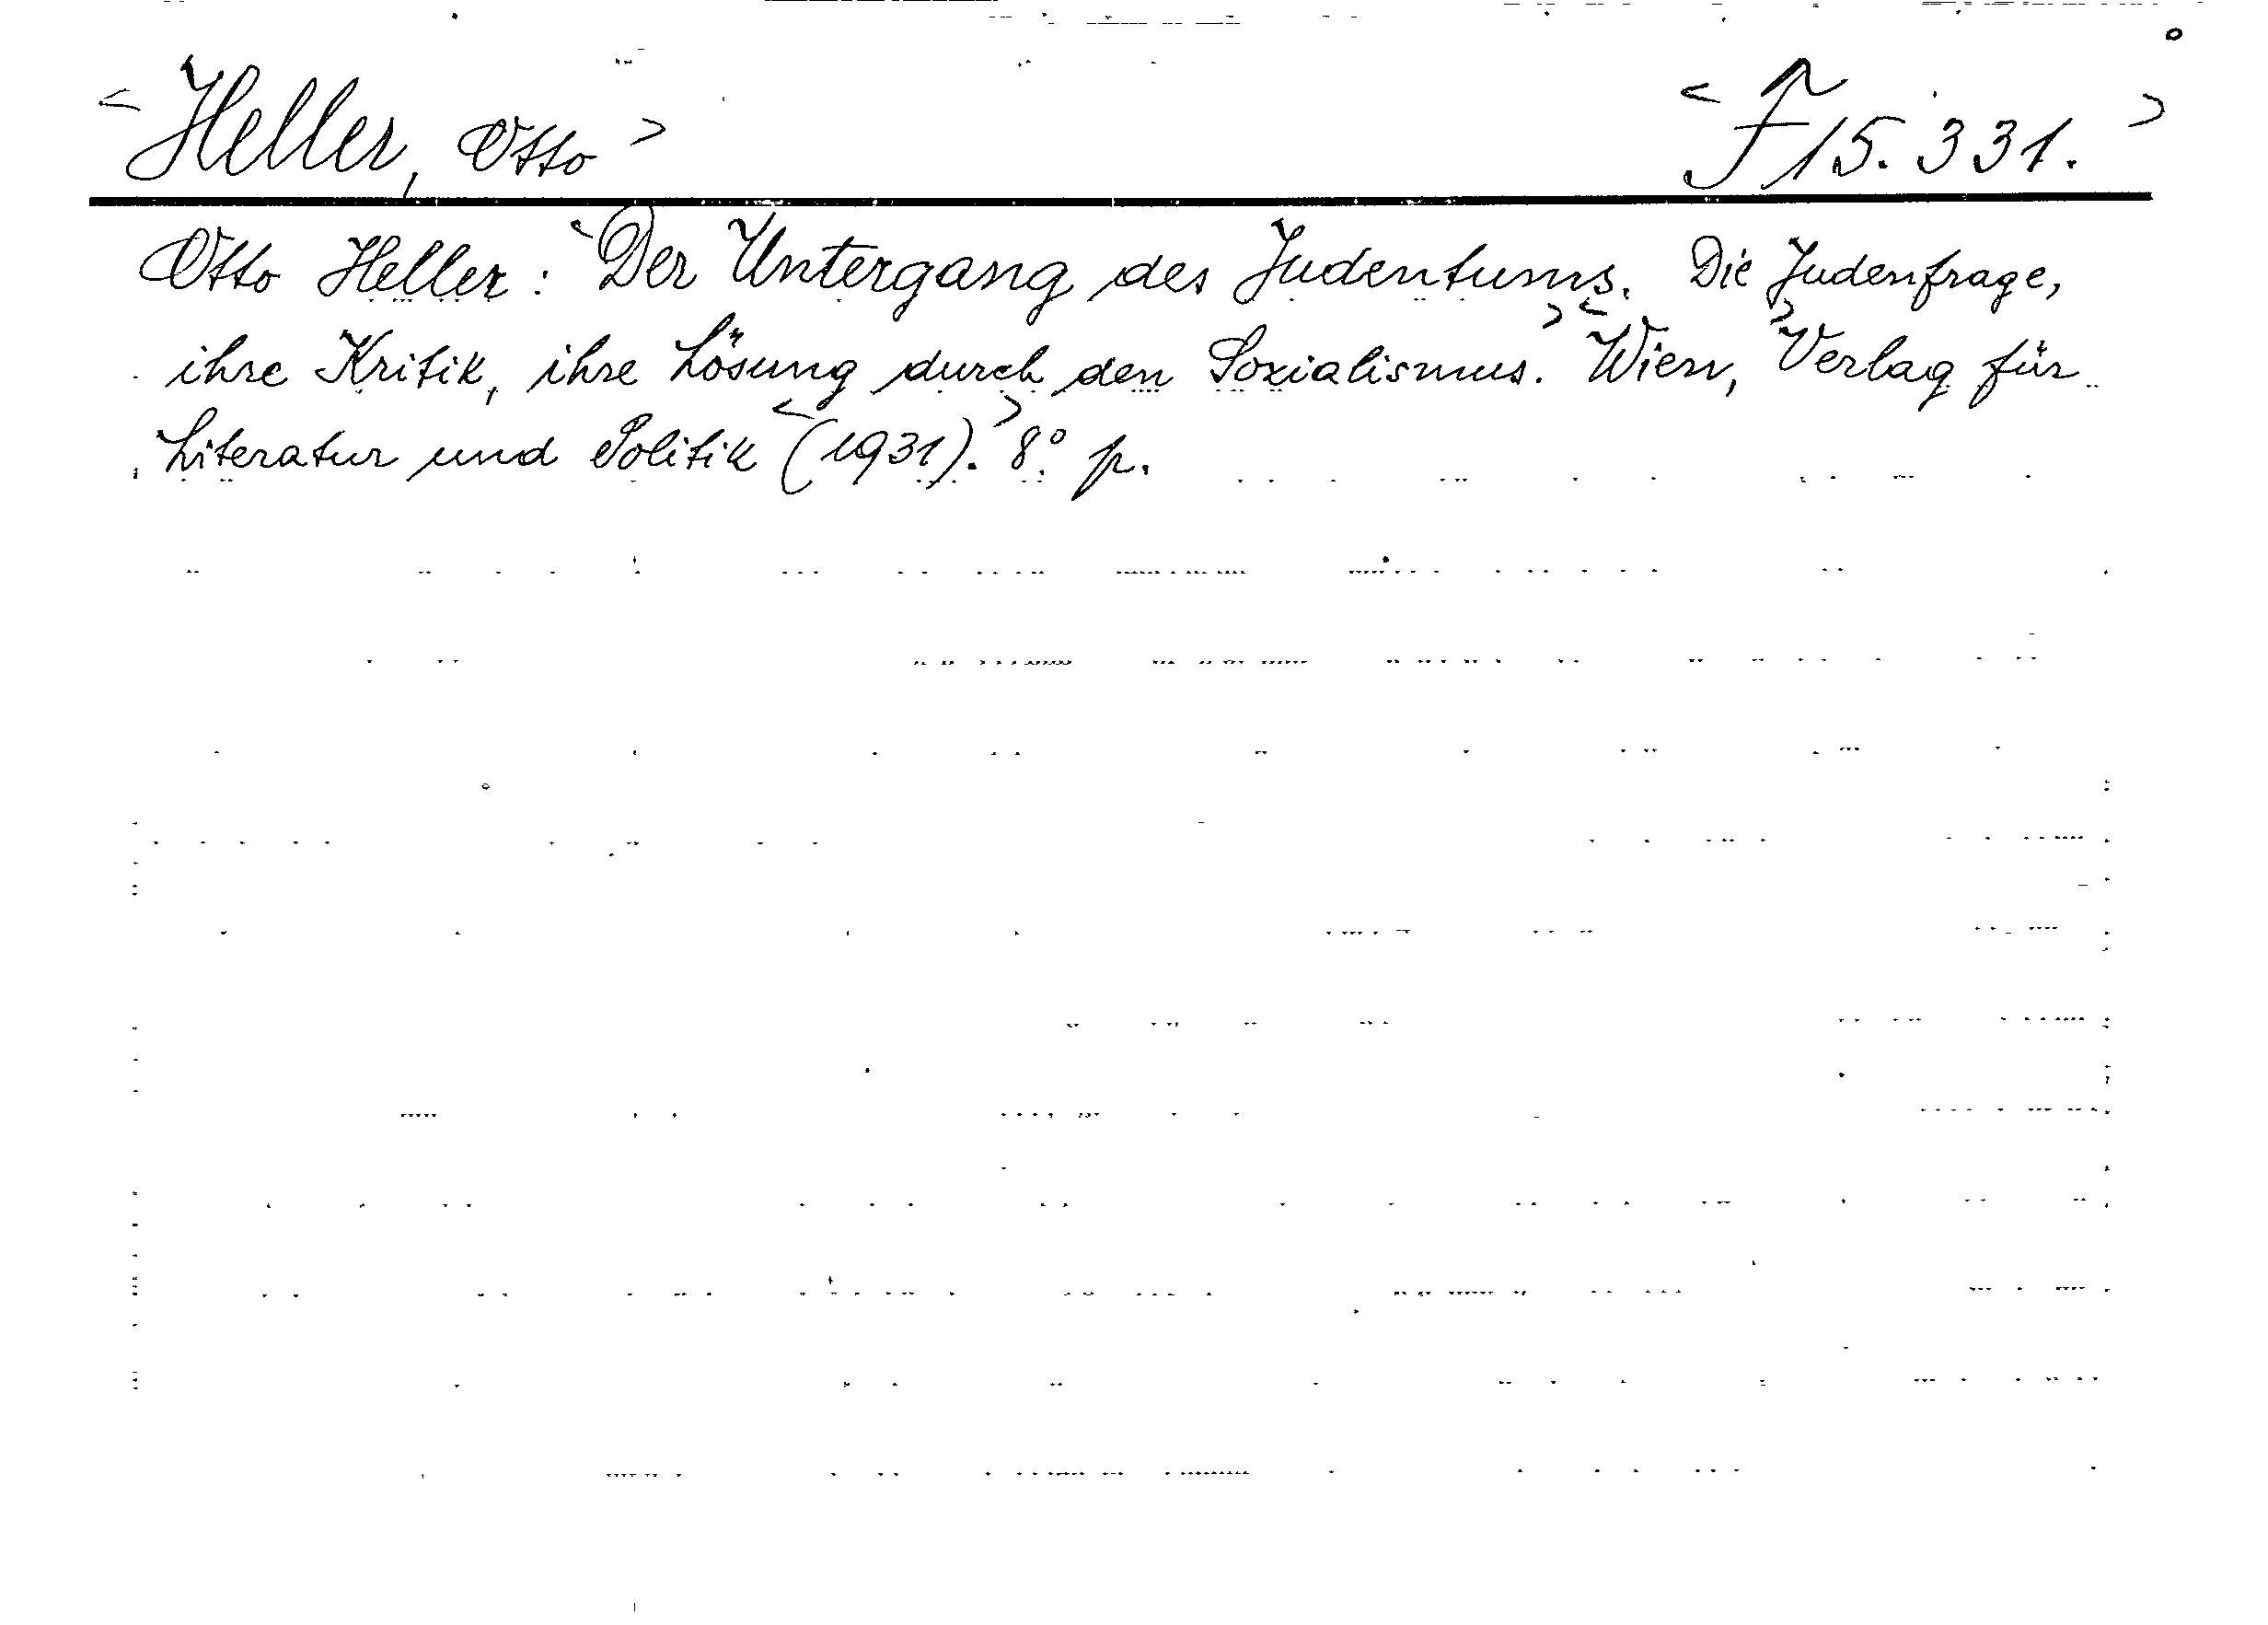 <Heller, Otto>
<F 15.331.>
Otto Heller: <Der Untergang des Judentums. Die Judenfrage,
ihre Kritik, ihre Lösung durch den Sozialismus.> <Wien,> Verlag für
Literatur und Politik <(1931).> 8° p.